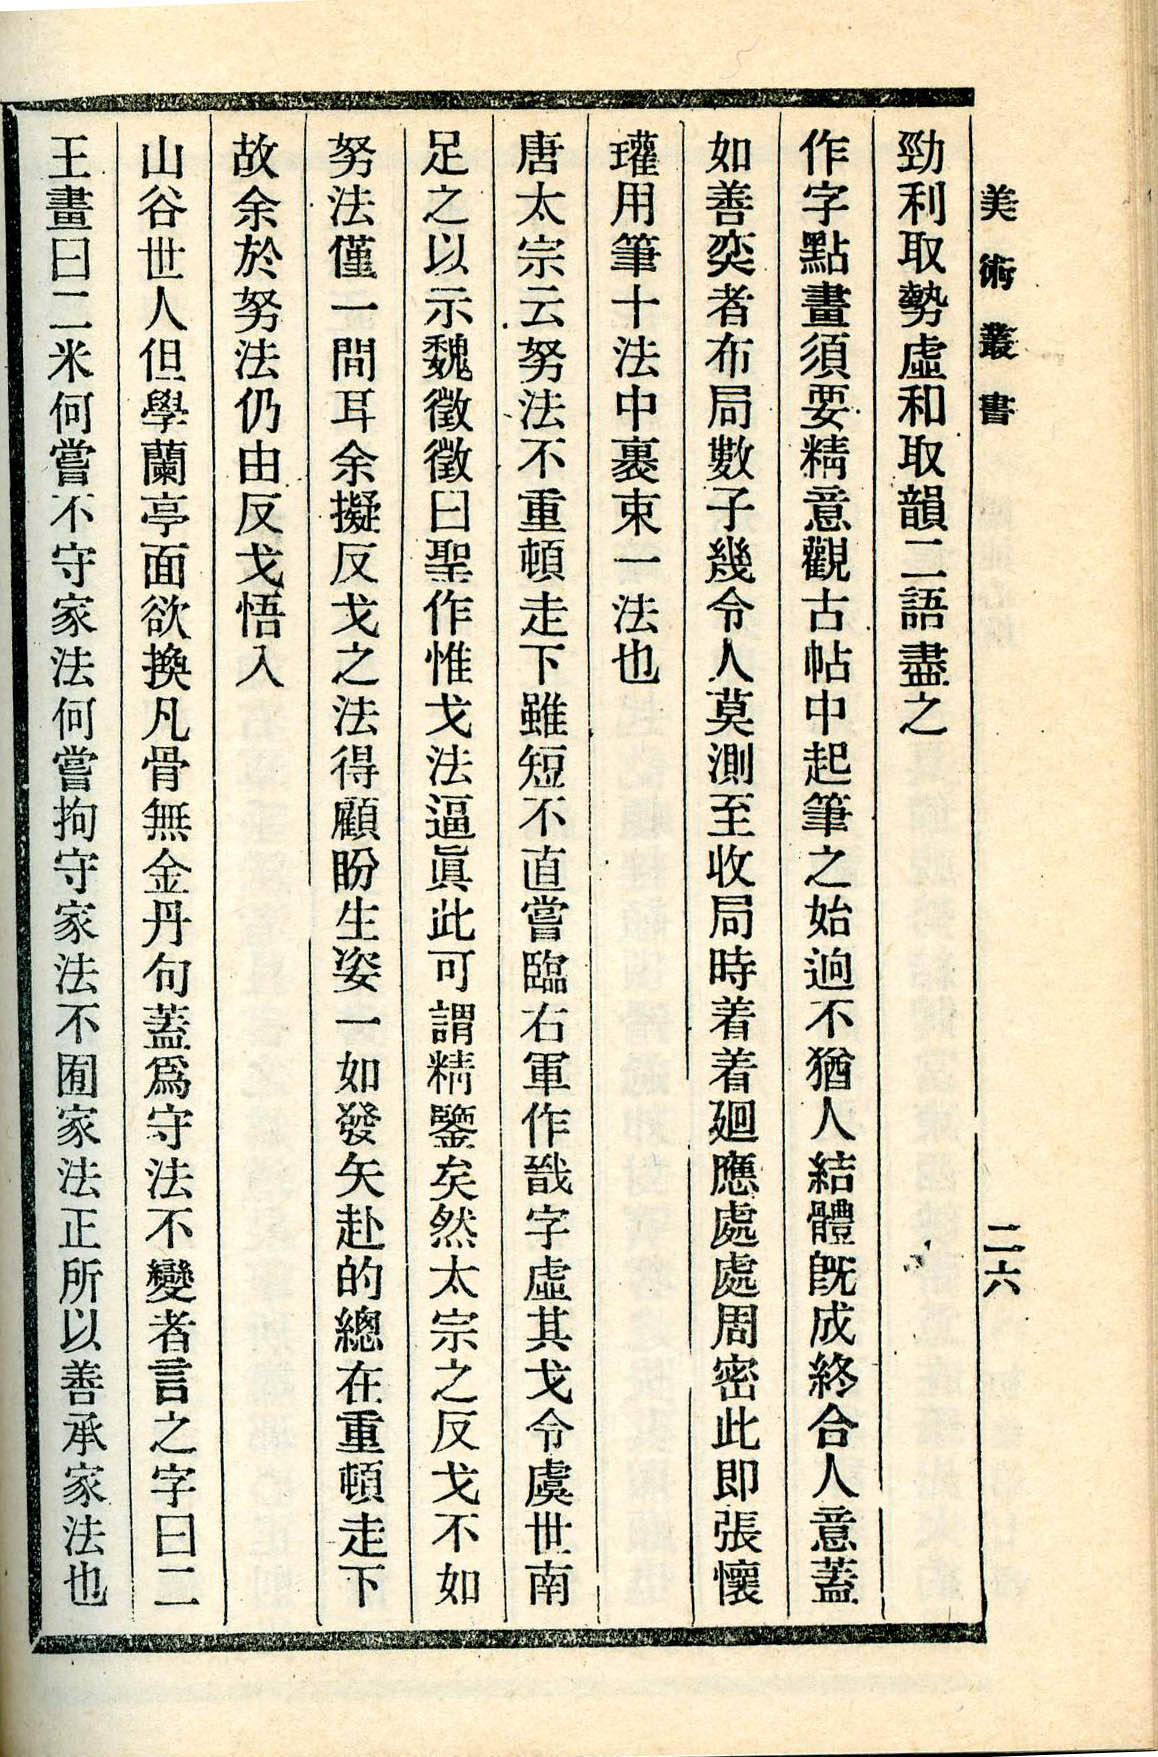 美術叢書
二六
勁利取勢虛和取韻二語盡之
作字點畫須要精意觀古帖中起筆之始逈不猶人結體旣成終合人意蓋
如善奕者布局數子幾令人莫測至收局時着着廻應處處周密此即張懷
瓘用筆十法中裹束一法也
唐太宗云努法不重頓走下雖短不直嘗臨右軍作戩字虛其戈令虞世南
足之以示魏徵徵曰聖作惟戈法逼眞此可謂精鑒矣然太宗之反戈不如
努法僅一間耳余擬反戈之法得顧盼生姿一如發矢赴的總在重頓走下
故余於努法仍由反戈悟入
山谷世人但學蘭亭面欲換凡骨無金丹句蓋爲守法不變者言之字曰二
王畫曰二米何嘗不守家法何嘗拘守家法不囿家法正所以善承家法也